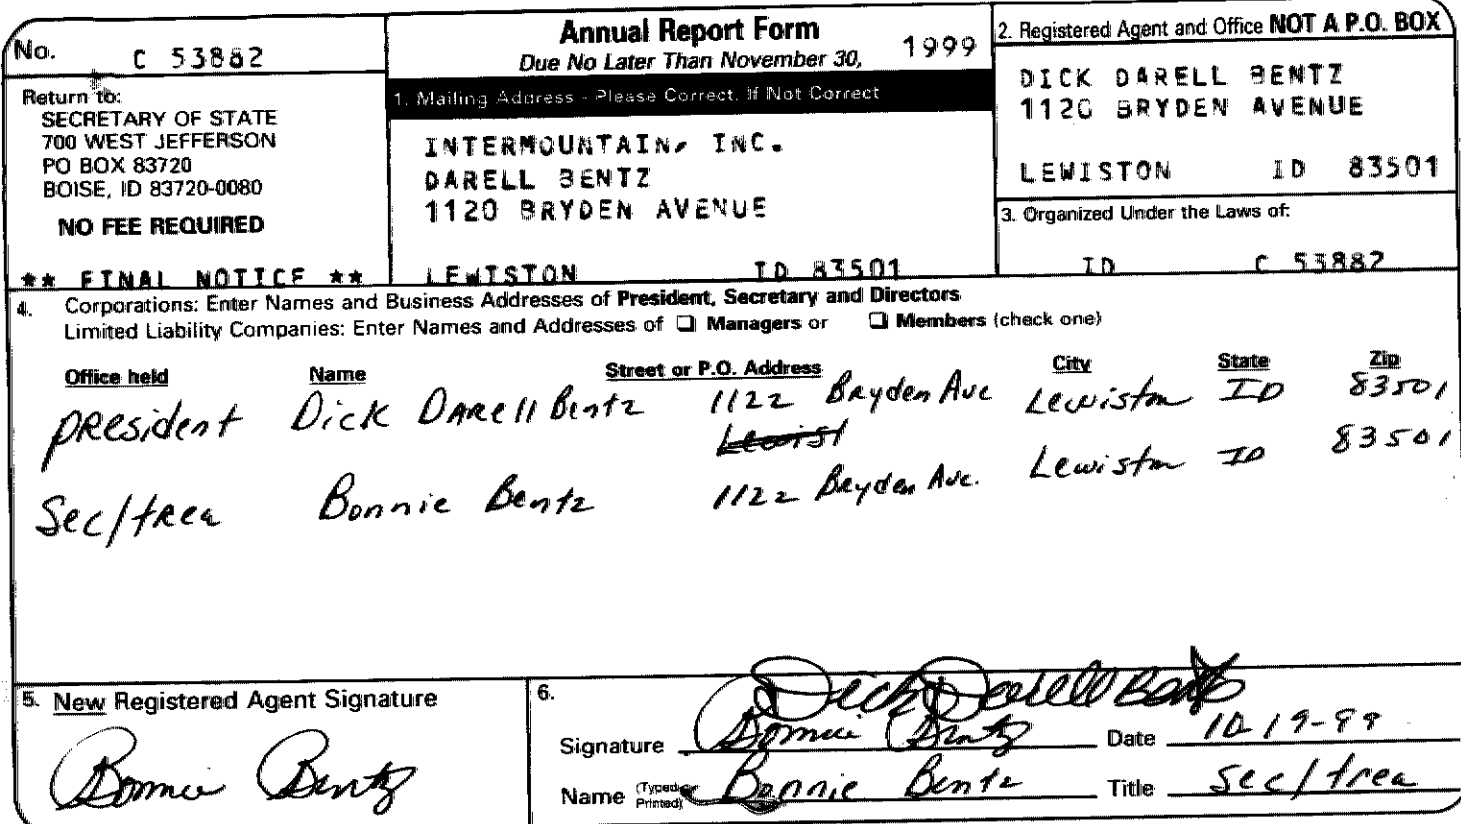 No. C 53882
Annual Report Form
Due No Later Than November 30, 1999
Return to:
SECRETARY OF STATE
700 WEST JEFFERSON
PO BOX 83720
BOISE, ID 83720-0080
NO FEE REQUIRED
** FINAL NOTICE **
1. Mailing Address - Please Correct, If Not Correct
INTERMOUNTAIN, INC.
DARELL BENTZ
1120 BRYDEN AVENUE
LEWISTON ID 83501
2. Registered Agent and Office NOT A P.O. BOX
DICK DARELL BENTZ
1120 BRYDEN AVENUE
LEWISTON ID 83501
3. Organized Under the Laws of:
ID C 53882
4. Corporations: Enter Names and Business Addresses of President, Secretary and Directors
Limited Liability Companies: Enter Names and Addresses of ❑ Managers or ❑ Members (check one)
Office held Name Street or P.O. Address City State Zip
President Dick Darell Bentz 1122 Bryden Ave Lewiston ID 83501
Lewist
Sec/trea Bonnie Bentz 1122 Bryden Ave. Lewiston ID 83501
5. New Registered Agent Signature
Bonnie Bentz
6.
Dick Darell Bentz
Signature Bonnie Bentz Date 10-19-99
Name (Typed or Printed) Bonnie Bentz Title Sec/trea